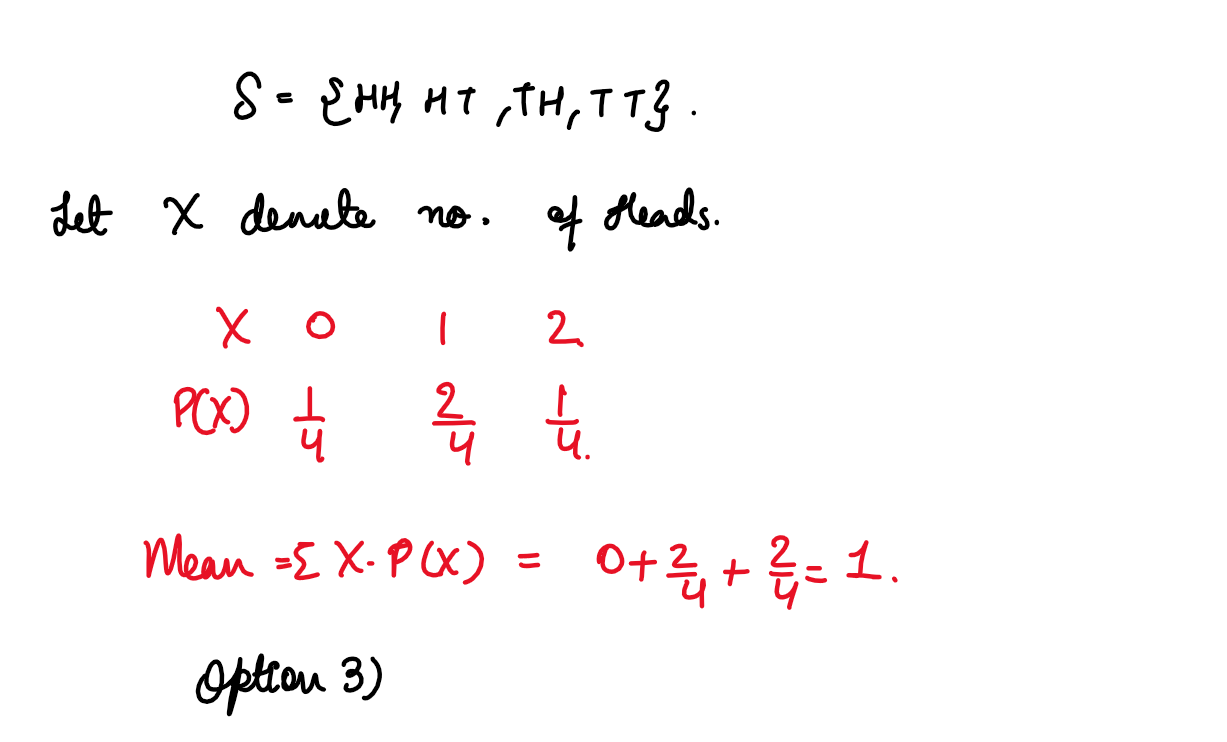 S = {HH, HT, TH, TT}.
Let X denote no. of Heads.
X 0 1 2
P(X) 1/4 2/4 1/4.
Mean = Σ X·P(X) = 0 + 2/4 + 2/4 = 1.
Option 3)